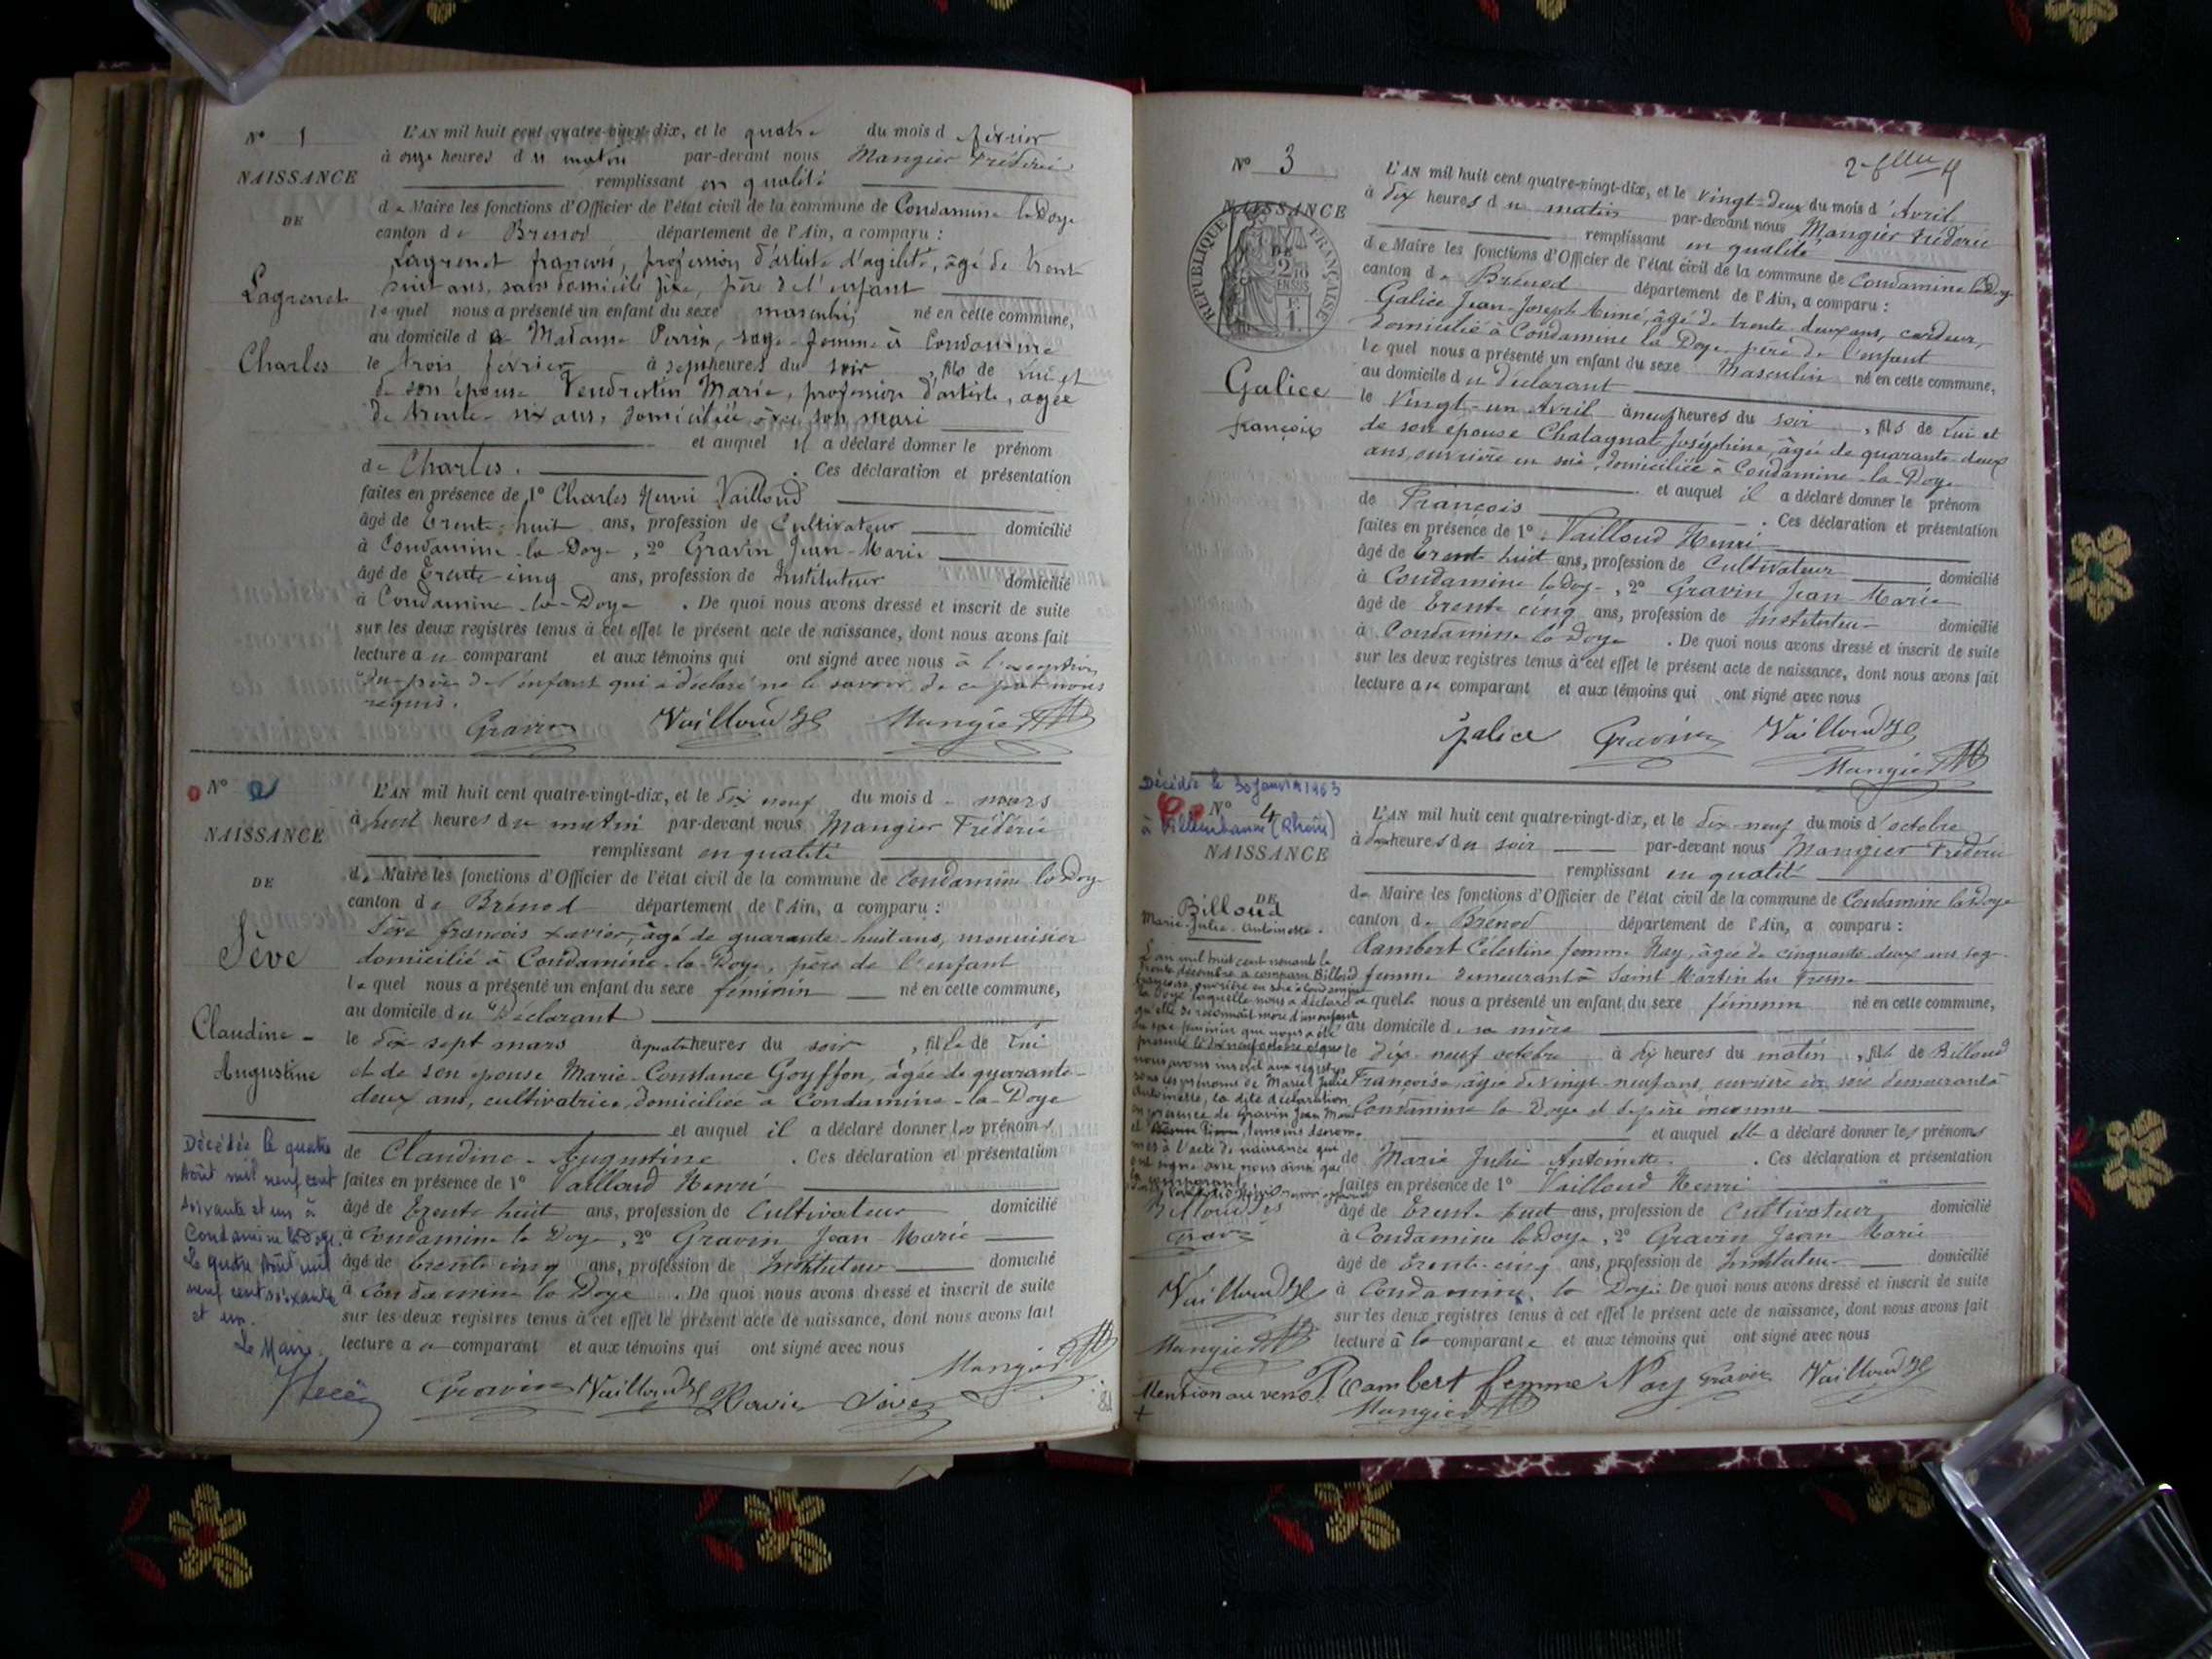 N° 1
NAISSANCE
DE
Lagrenet
Charles
L'AN mil huit cent quatre-vingt-dix, et le quatre du mois d février
à onze heures du matin par-devant nous Mangier Fréderic
remplissant en qualité
de Maire les fonctions d'Officier de l'état civil de la commune de Condamine la Doye
canton de Brenod département de l'Ain, a comparu :
Lagrenet françois, profession d'artiste d'agilité, âgé de trente
huit ans, sans domicile fixe, père de l'enfant
lequel nous a présenté un enfant du sexe masculin né en cette commune,
au domicile de Madame Perrin, sage-femme à Condamine
le trois février à sept heures du soir, fils de lui et
de son épouse Vendrestin Marie, profession d'artiste, agée
de trente-six ans, domiciliée avec son mari
et auquel il a déclaré donner le prénom
de Charles. Ces déclaration et présentation
faites en présence de 1° Charles Henri Vailloud
âgé de trente-huit ans, profession de Cultivateur domicilié
à Condamine-la-Doye, 2° Gravin Jean-Marie
âgé de trente-cinq ans, profession de Instituteur domicilié
à Condamine-la-Doye. De quoi nous avons dressé et inscrit de suite
sur les deux registres tenus à cet effet le présent acte de naissance, dont nous avons fait
lecture au comparant et aux témoins qui ont signé avec nous à l'exception
du père de l'enfant qui a déclaré ne le savoir de ce par nous
requis.
Gravin Vailloud H Mangier
N° 2
NAISSANCE
DE
Sève
Claudine-
Augustine
L'AN mil huit cent quatre-vingt-dix, et le dix neuf du mois de mars
à huit heures du matin par-devant nous Mangier Fréderic
remplissant en qualité
de Maire les fonctions d'Officier de l'état civil de la commune de Condamine la Doye
canton de Brénod département de l'Ain, a comparu :
Sève françois Xavier, âgé de quarante-huit ans, menuisier
domicilié à Condamine-la-Doye, père de l'enfant
lequel nous a présenté un enfant du sexe féminin né en cette commune,
au domicile du Déclarant
le dix sept mars à quatre heures du soir, fille de lui
et de son épouse Marie-Constance Goyffon, âgée de quarante-
deux ans, cultivatrice, domiciliée à Condamine-la-Doye
et auquel il a déclaré donner les prénoms
de Claudine-Augustine. Ces déclaration et présentation
faites en présence de 1° Vailloud Henri
âgé de trente huit ans, profession de Cultivateur domicilié
à Condamine la Doye, 2° Gravin Jean-Marie
âgé de trente cinq ans, profession de Instituteur domicilié
à Condamine la Doye. De quoi nous avons dressé et inscrit de suite
sur les deux registres tenus à cet effet le présent acte de naissance, dont nous avons fait
lecture au comparant et aux témoins qui ont signé avec nous
Mangier
Gravin Vailloud H Xavier Sève
Décédée le quatre
Août mil neuf cent
soixante et un à
Condamine la Doye.
le quatre Août mil
neuf cent soixante
et un.
Le Maire.
2e flleu
N° 3
NAISSANCE
DE
RÉPUBLIQUE FRANÇAISE
Galice
françois
L'AN mil huit cent quatre-vingt-dix, et le vingt-deux du mois d'Avril
à dix heures du matin par-devant nous Mangier Fréderic
remplissant en qualité
de Maire les fonctions d'Officier de l'état civil de la commune de Condamine la Doye
canton de Brénod département de l'Ain, a comparu :
Galice Jean-Joseph Aimé, âgé de trente-deux ans, cardeur,
domicilié à Condamine la Doye, père de l'enfant
lequel nous a présenté un enfant du sexe Masculin né en cette commune,
au domicile du déclarant
le Vingt-un Avril à neuf heures du soir, fils de Lui et
de son épouse Chatagnat Joséphine, âgée de quarante-deux
ans, ouvrière en soie, domiciliée à Condamine-la-Doye
et auquel il a déclaré donner le prénom
de François. Ces déclaration et présentation
faites en présence de 1° Vailloud Henri
âgé de trente huit ans, profession de Cultivateur domicilié
à Condamine la Doye, 2° Gravin Jean Marie
âgé de trente cinq ans, profession de Instituteur domicilié
à Condamine la Doye. De quoi nous avons dressé et inscrit de suite
sur les deux registres tenus à cet effet le présent acte de naissance, dont nous avons fait
lecture au comparant et aux témoins qui ont signé avec nous
Galice Gravin Vailloud H
Mangier
Décédée le 30 Janvier 1963
à Villeurbanne (Rhône)
N° 4
NAISSANCE
DE
Billoud
Marie-Julie-Antoinette.
L'an mil huit cent nonante le
trente décembre a comparu Billoud
françoise, ouvrière en soie à Condamine
la Doye laquelle nous a déclaré
qu'elle se reconnait mère d'un enfant
du sexe féminin qui nous a été
présenté le dix neuf octobre et que
nous avons inscrit aux registres
sous les prénoms de Marie Julie
Antoinette, la dite déclaration
en présence de Gravin Jean Marie
témoins dénom-
més à l'acte de naissance qui
ont signé avec nous ainsi que
la comparante
Billoud
Gravin
Vailloud H
Mangier
Mention au verso
L'AN mil huit cent quatre-vingt-dix, et le dix-neuf du mois d'octobre
à heures du soir par-devant nous Mangier Fréderic
remplissant en qualité
de Maire les fonctions d'Officier de l'état civil de la commune de Condamine la Doye
canton de Brenod département de l'Ain, a comparu :
Rambert Célestine femme Nay, âgée de cinquante-deux ans sage-
femme demeurant à Saint Martin du Fresne
laquelle nous a présenté un enfant du sexe féminin né en cette commune,
au domicile de sa mère
le dix-neuf octobre à dix heures du matin, fille de Billoud
Françoise, âgée de vingt-neuf ans, ouvrière en soie demeurant à
Condamine la Doye et de père inconnu
et auquel elle a déclaré donner les prénoms
de Marie Julie Antoinette. Ces déclaration et présentation
faites en présence de 1° Vailloud Henri
âgé de trente huit ans, profession de Cultivateur domicilié
à Condamine la Doye, 2° Gravin Jean Marie
âgé de trente-cinq ans, profession de Instituteur domicilié
à Condamine la Doye. De quoi nous avons dressé et inscrit de suite
sur les deux registres tenus à cet effet le présent acte de naissance, dont nous avons fait
lecture à la comparante et aux témoins qui ont signé avec nous
Rambert femme Nay Gravin Vailloud H
Mangier